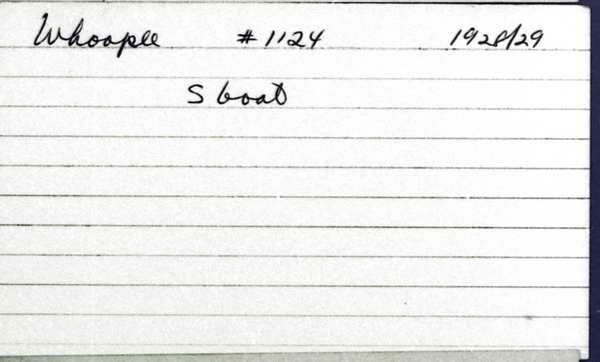 Whoopee #1124 1928/29
S boat